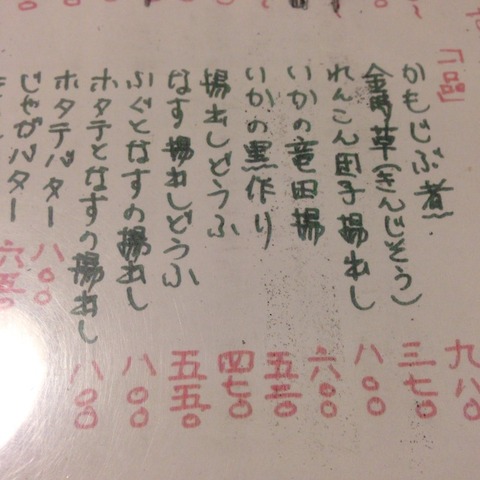 「一品」
かもじぶ煮 九八〇
金時草(きんじそう) 三七〇
れんこん団子揚出し 八〇〇
いかの竜田揚 六〇〇
いかの黒作り 五三〇
揚出しどうふ 四七〇
なす揚出しどうふ 五五〇
ふぐとなすの揚出し 八〇〇
ホタテとなすの揚出し 八〇〇
ホタテバター 八〇〇
じゃがバター 六五〇